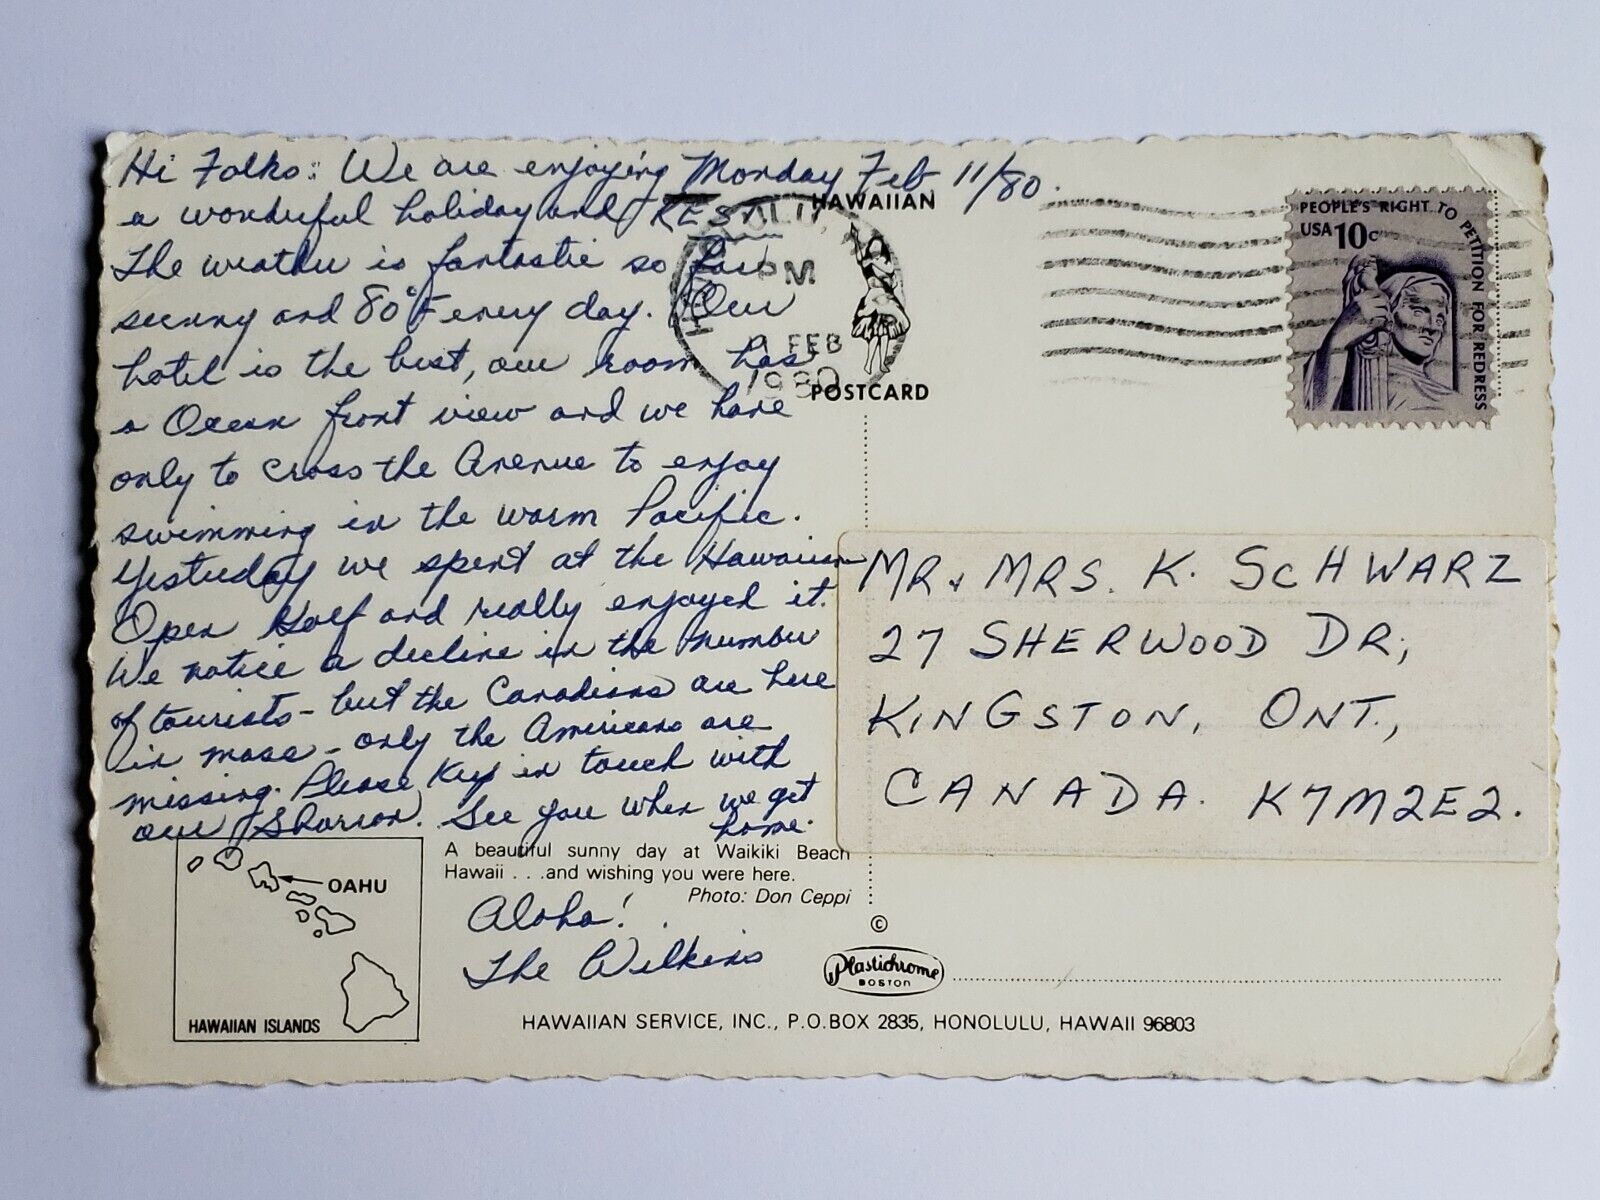 Monday Feb 11/80.
Hi Folks: We are enjoying
a wonderful holiday and REST.
The weather is fantastic so far
sunny and 80°F every day. Our
hotel is the best, our room has
a Ocean front view and we have
only to cross the Avenue to enjoy
swimming in the warm Pacific.
Yesterday we spent at the Hawaiian
Open Golf and really enjoyed it.
We notice a decline in the number
of tourists - but the Canadians are here
in mass - only the Americans are
missing. Please Keep in touch with
our Sharron. See you when we get
home.
Aloha!
The Wilkins
HAWAIIAN
POSTCARD
PM
FEB
1980
PEOPLE'S RIGHT TO PETITION FOR REDRESS
USA 10c
MR & MRS. K. SCHWARZ
27 SHERWOOD DR,
KINGSTON, ONT.,
CANADA. K7M2E2.
A beautiful sunny day at Waikiki Beach
Hawaii . . .and wishing you were here.
Photo: Don Ceppi
OAHU
HAWAIIAN ISLANDS
©
Plastichrome
BOSTON
HAWAIIAN SERVICE, INC., P.O.BOX 2835, HONOLULU, HAWAII 96803